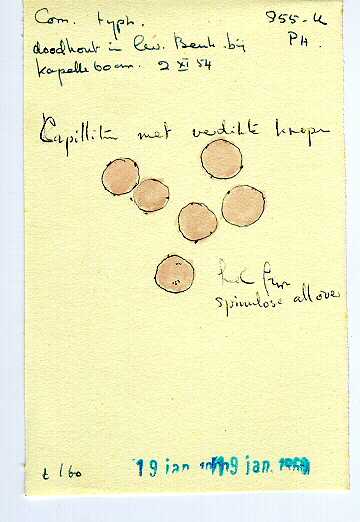 Com. typh. 955-u
doodhout in lev. Beuk. bij PH.
Kapelleboom. 2 XI 54
Capillitiu met verdikte knopen
spinulose all over
t 160
19 jan. 19 jan. 1959